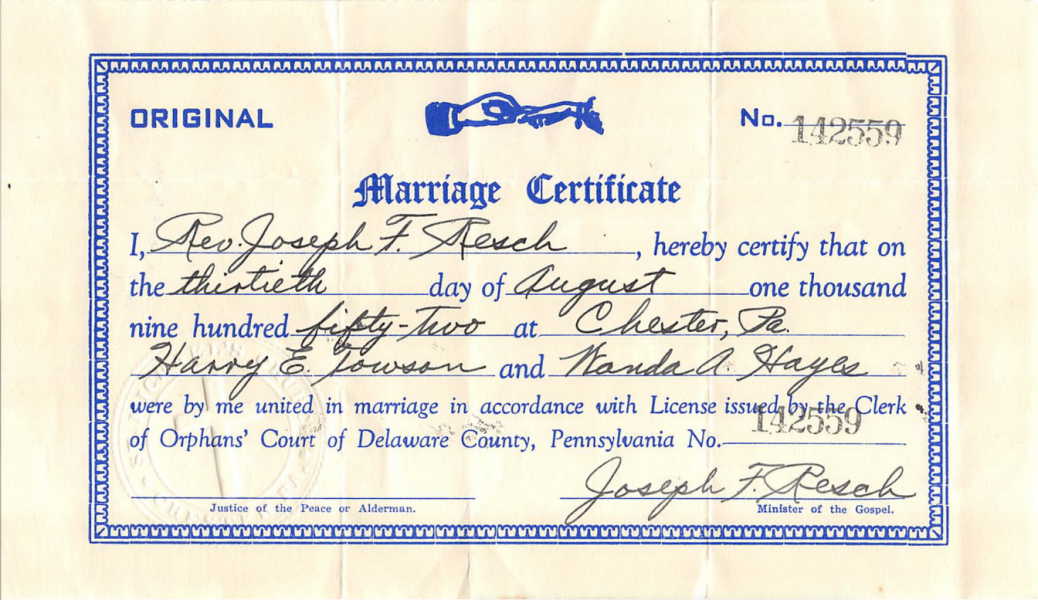 ORIGINAL
No. 142559
Marriage Certificate
I, Rev. Joseph F. Resch, hereby certify that on
the thirtieth day of August one thousand
nine hundred fifty-two at Chester, Pa.
Harry E. Towson and Wanda A. Hayes
were by me united in marriage in accordance with License issued by the Clerk
of Orphans' Court of Delaware County, Pennsylvania No. 142559
Joseph F. Resch
Justice of the Peace or Alderman. Minister of the Gospel.